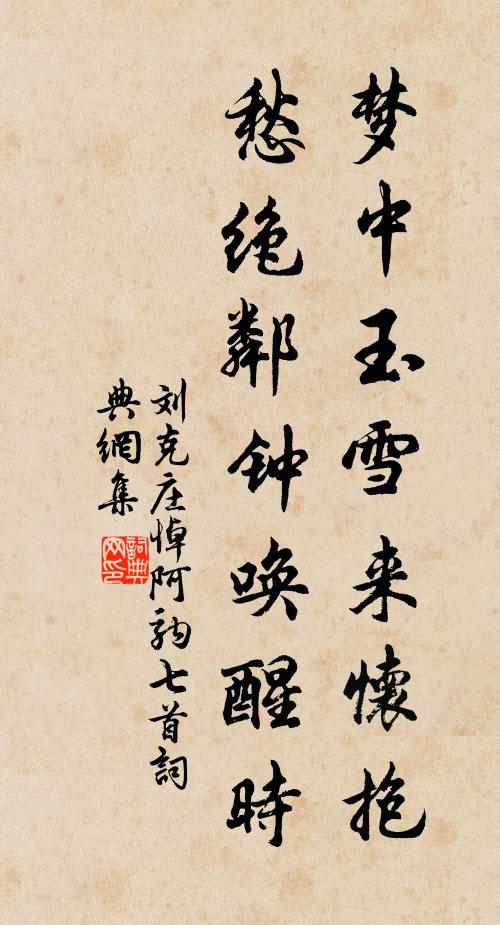 梦中玉雪来懷抱
愁绝鄰钟唤醒時
刘克庄悼阿驹七首詞
典網集
詞典網印